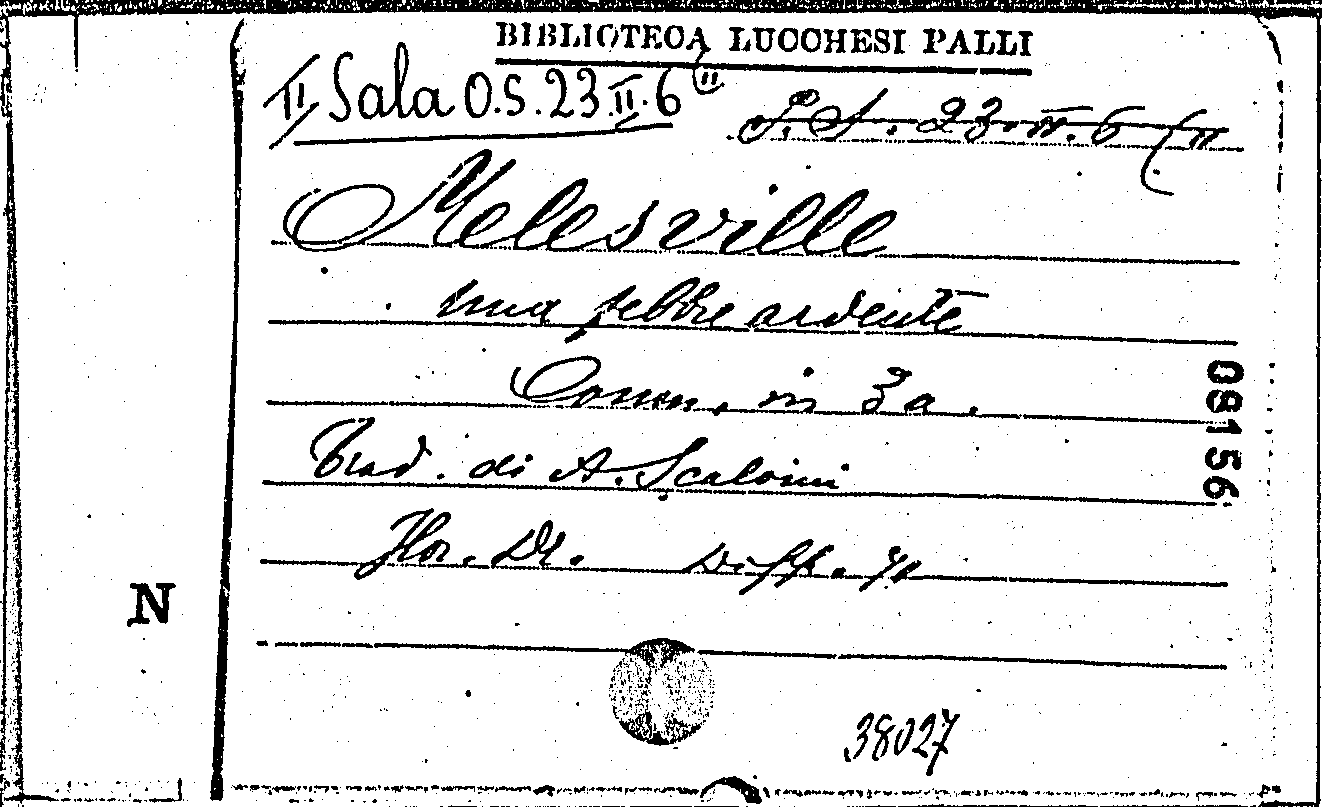 BIBLIOTECA LUCCHESI PALLI
II Sala O.S. 23. II. 6 (11
S. S. 23. II. 6 (11
Melesville
una febbre ardente
Comm. in 3 a.
Trad. di A. Scalvini
Flor. Dr.
38027
08156
N